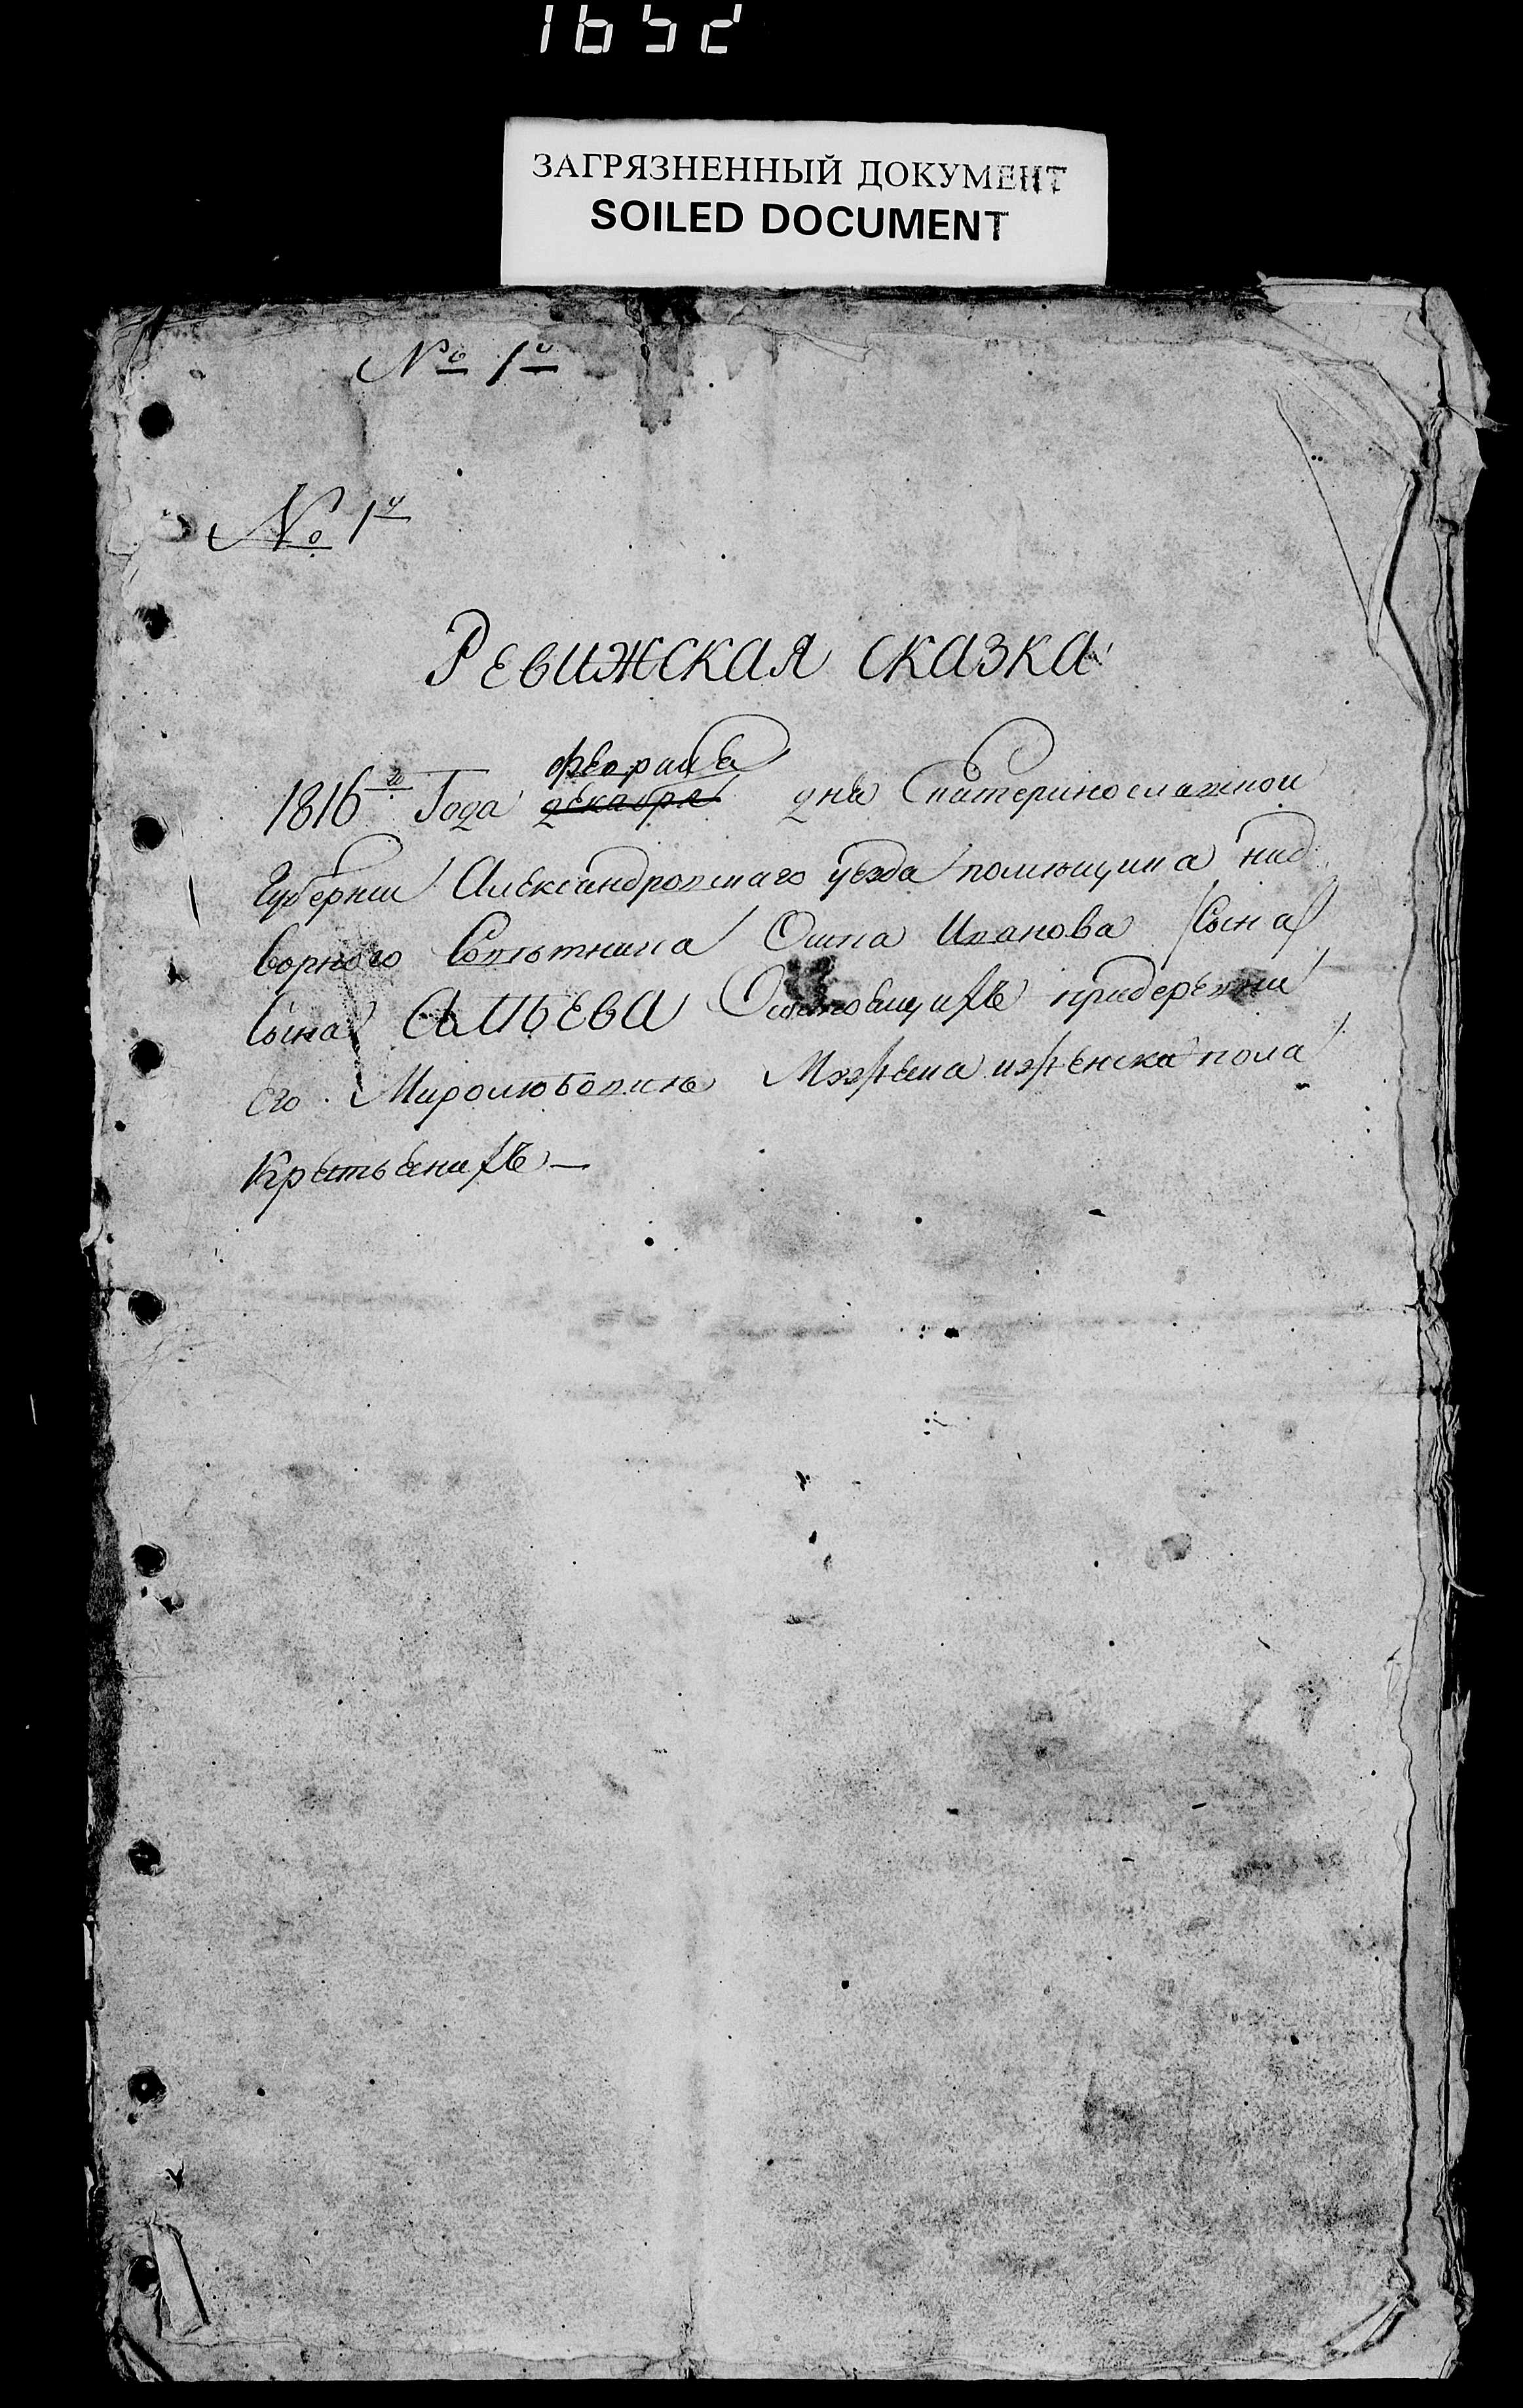 1652
ЗАГРЯЗНЕННЫЙ ДОКУМЕНТ
SOILED DOCUMENT
№ 1й
№ 1й
Ревижская сказка
февраля
1816го Года декабря дня Екатеринославской
Губернии Александровскаго уезда помющика над
ворного Советника Осипа Иванова Сына
Сына Состоящихъ придеревни
его Миролюбовке Мужеска иженска пола
Крестьянахъ —